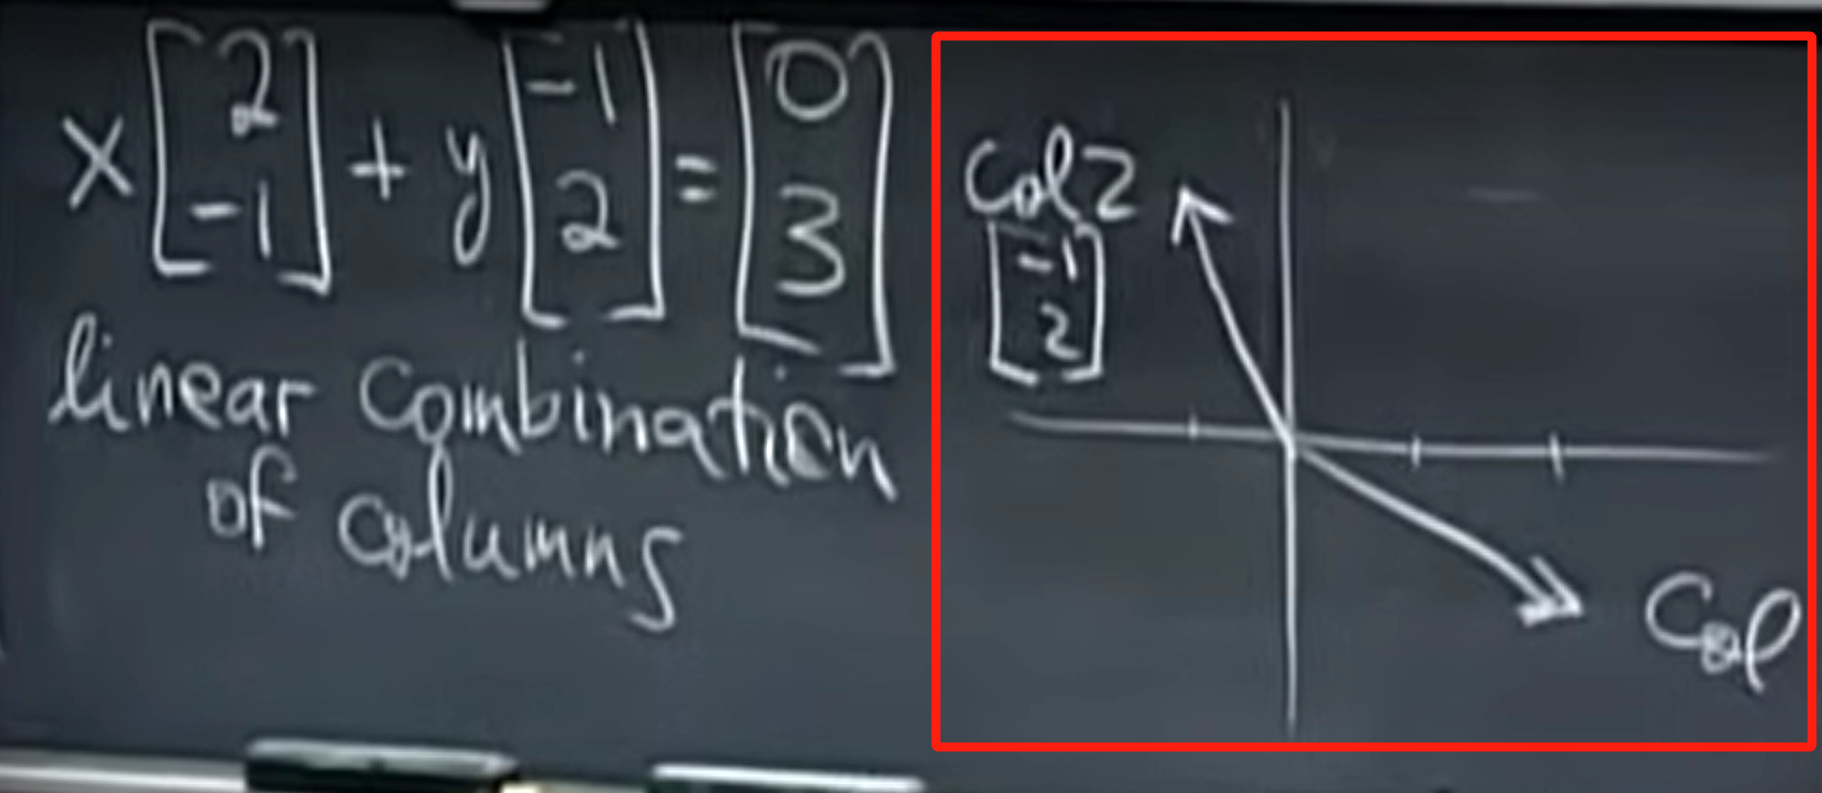 x [2 -1] + y [-1 2] = [0 3]
linear combination
of columns
Col 2
[-1 2]
Col